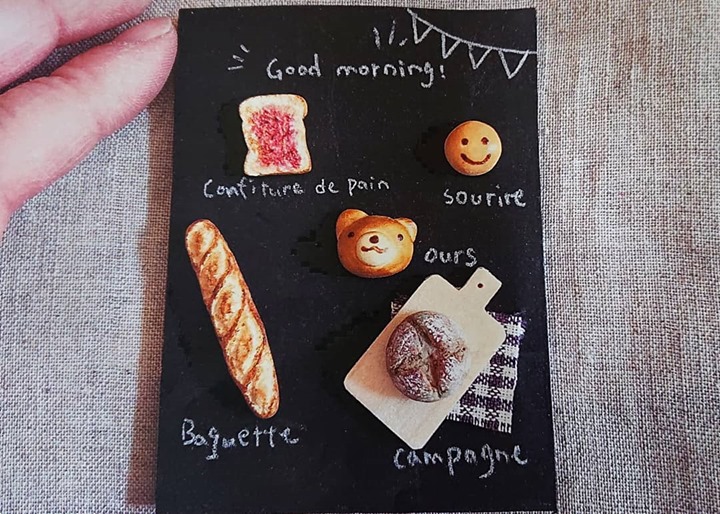 Good morning!
Confiture de pain
sourire
ours
Baguette
campagne